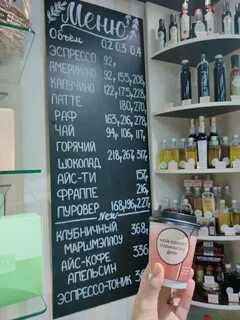 Меню
Объём 0,2 0,3 0,4
Эспрессо 92,
Американо 92, 155, 208,
Капучино 122, 175, 228,
Латте 180, 270,
Раф 163, 216, 278,
Чай 94, 106, 117,
Горячий
Шоколад 218, 267, 317,
Айс-ти 157,
Фраппе 216,
Пуровер 168, 196, 227,
New
Клубничный 368,
Маршмэллоу
Айс-кофе 336
Апельсин
Эспрессо-тоник
МОЙ СЕКРЕТ
ОТЛИЧНОГО
ДНЯ